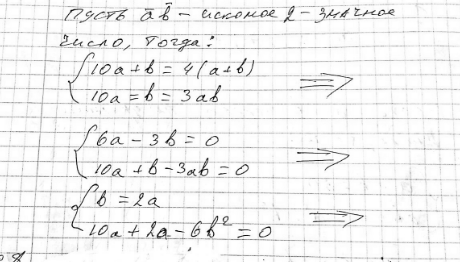 Пусть a̅ b̅ - искомое 2-значное
число, Тогда:
{10a+b = 4(a+b)
10a = b = 3ab ⇒
{6a - 3b = 0
10a + b - 3ab = 0 ⇒
{b = 2a
10a + 2a - 6b² = 0 ⇒